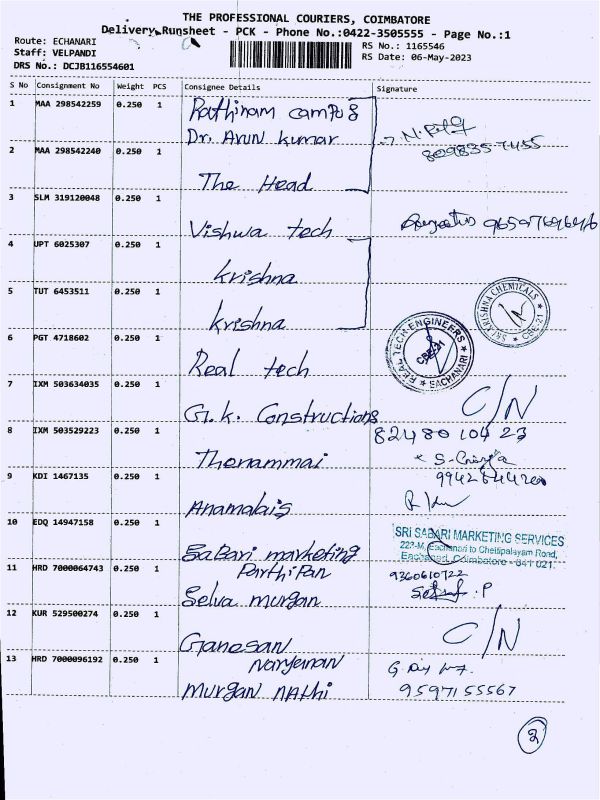 THE PROFESSIONAL COURIERS, COIMBATORE
Delivery Runsheet - PCK - Phone No.:0422-3505555 - Page No.:1
Route: ECHANARI
Staff: VELPANDI
DRS No.: DCJB116554601
RS No.: 1165546
RS Date: 06-May-2023
S No Consignment No Weight PCS Consignee Details Signature
1 MAA 298542259 0.250 1 Rathinam campus
Dr. Arun kumar
8098357455
2 MAA 298542240 0.250 1
The Head
3 SLM 319120048 0.250 1
Vishwa tech
4 UPT 6025307 0.250 1
krishna
5 TUT 6453511 0.250 1
krishna
SRI KRISHNA CHEMICALS
CBE-21
6 PGT 4718602 0.250 1
Real tech
REAL TECH ENGINEERS
CBE-21
EACHANARI
7 IXM 503634035 0.250 1
G.K. Constructions
C/N
8 IXM 503529223 0.250 1
8248010423
Thenammai
9 KDI 1467135 0.250 1
Anamalais
10 EDQ 14947158 0.250 1
Sabari marketing
SRI SABARI MARKETING SERVICES
222-M, Eachanari to Chettipalayam Road,
Eachanari, Coimbatore - 641 021.
11 HRD 7000064743 0.250 1 Parthipan
9360610722
Selva murgan
12 KUR 529500274 0.250 1
Ganesan
C/N
13 HRD 7000096192 0.250 1 Naryanan
murgan nathi
9597155567
2